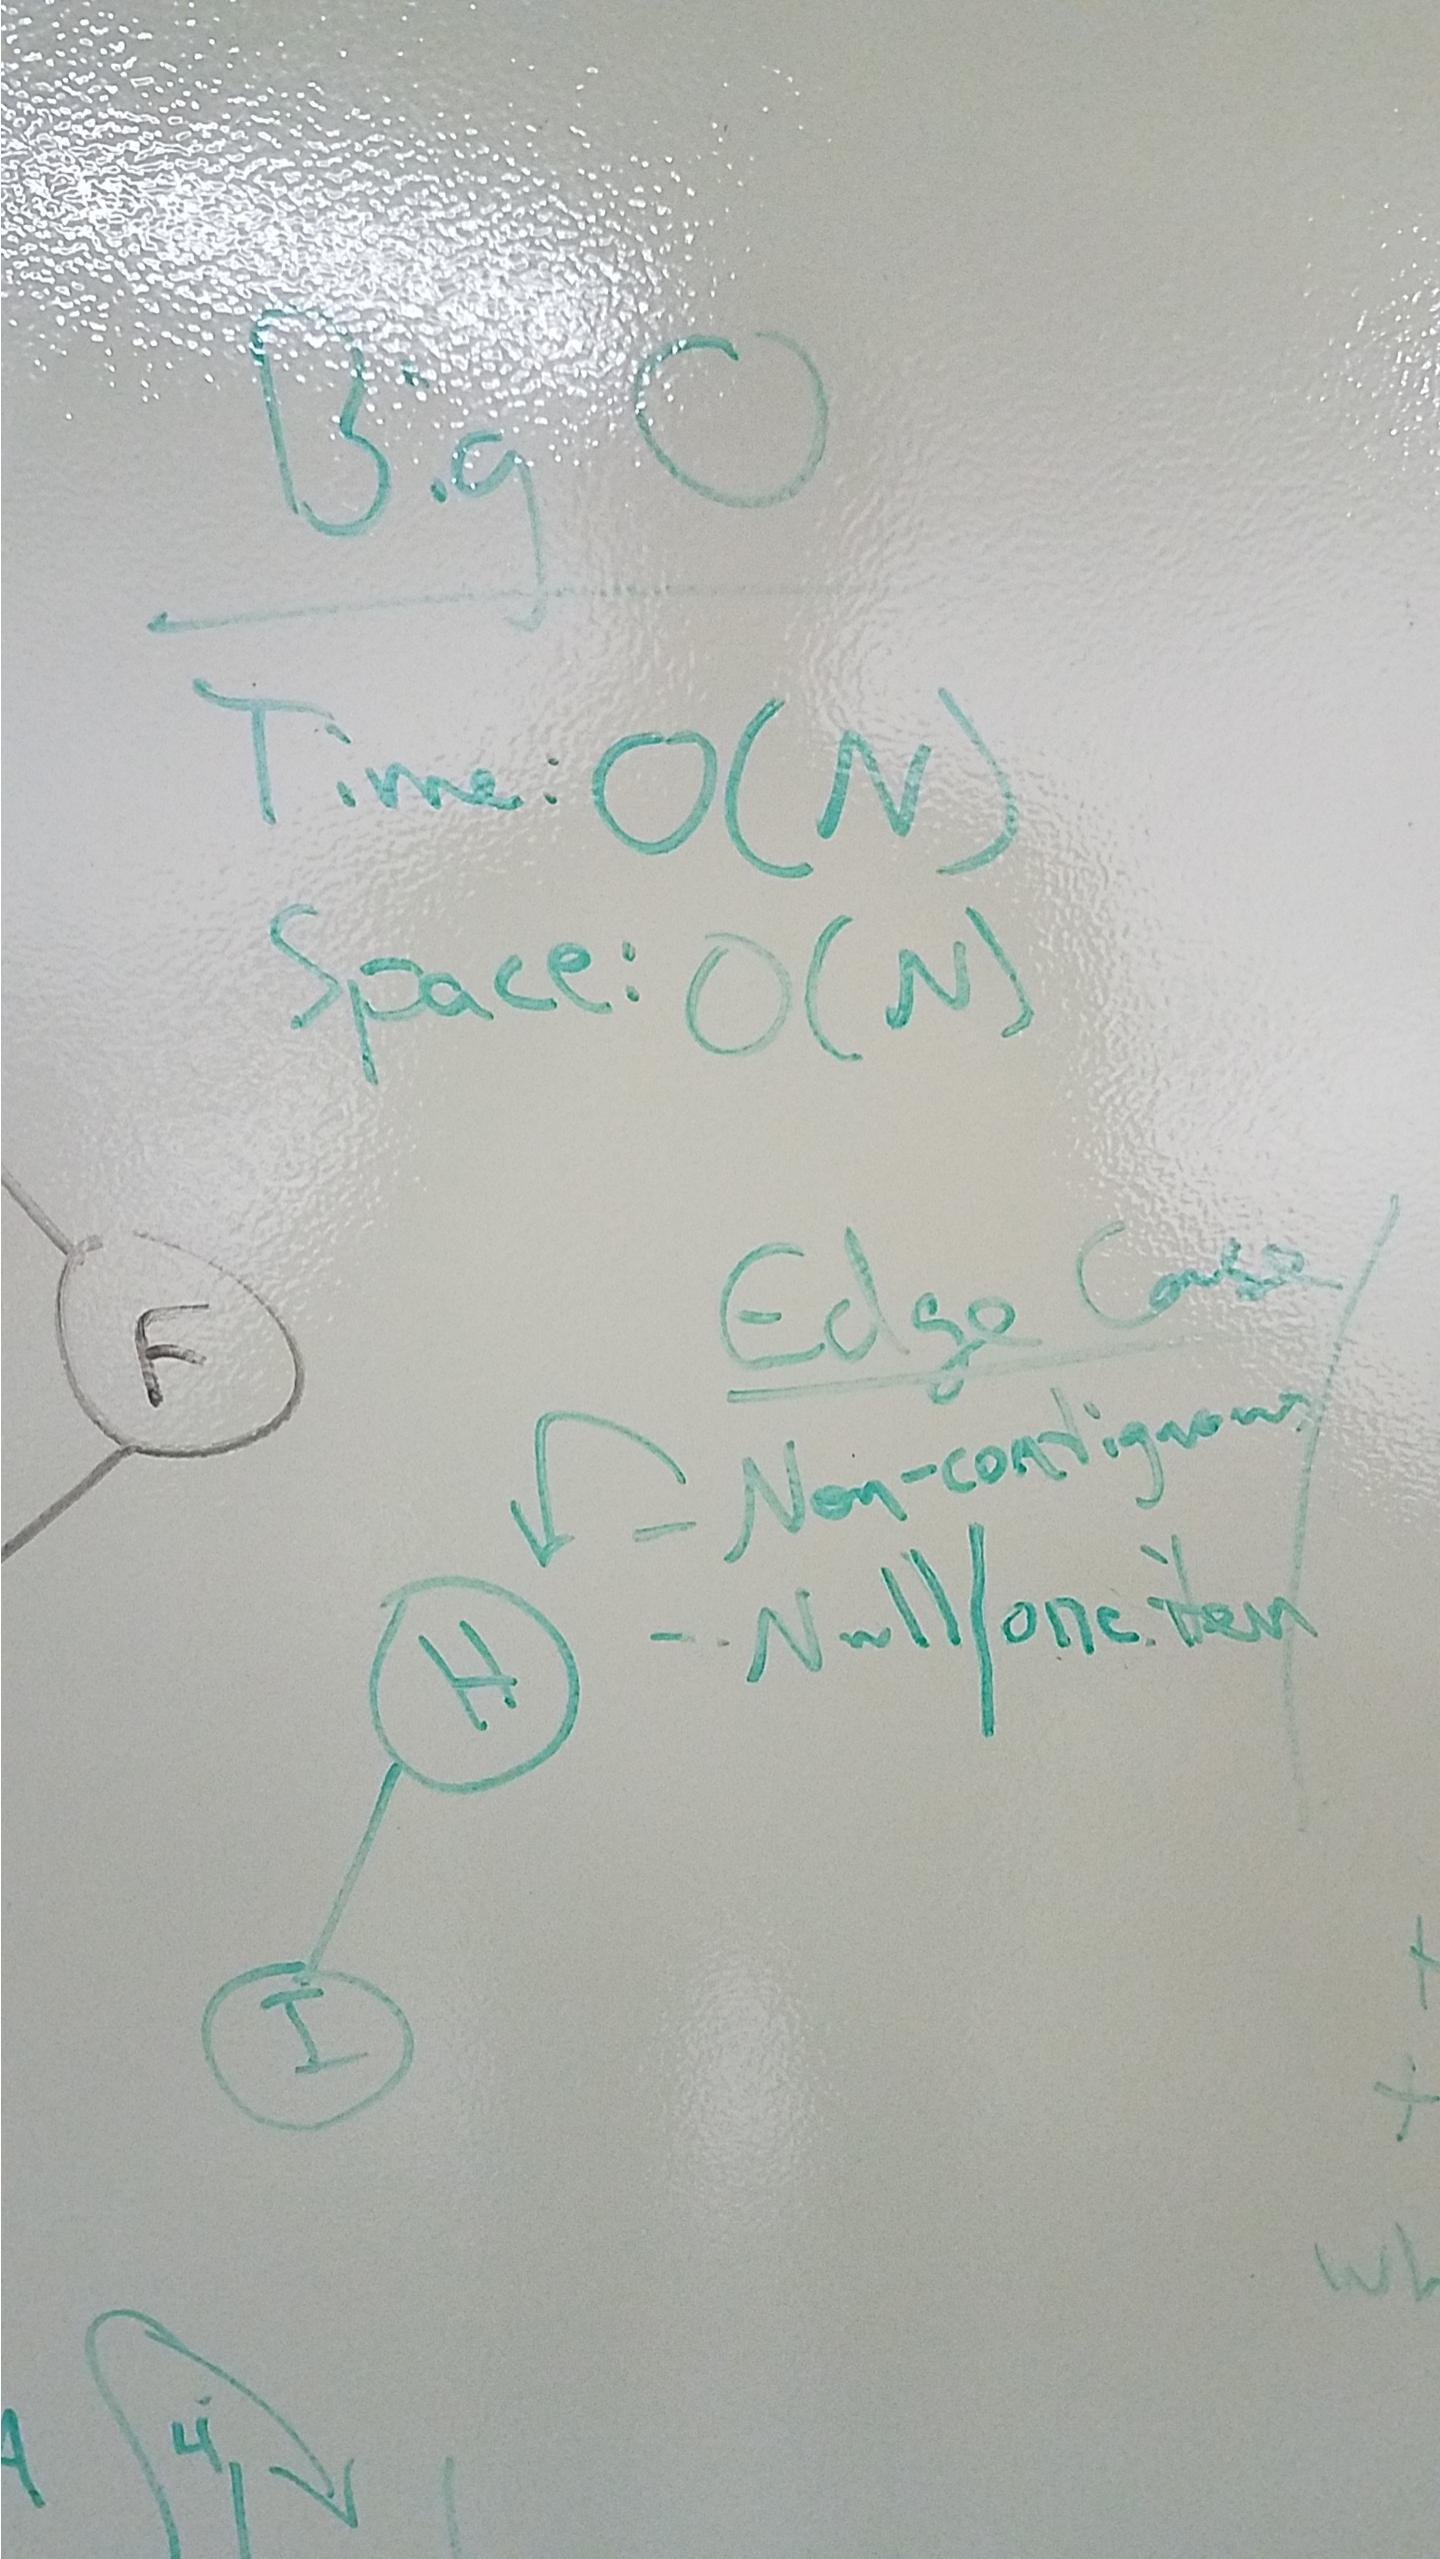 Big O
Time: O(N)
Space: O(N)
F
Edge Case
- Non-contiguous
- Null/one item
H
I
4